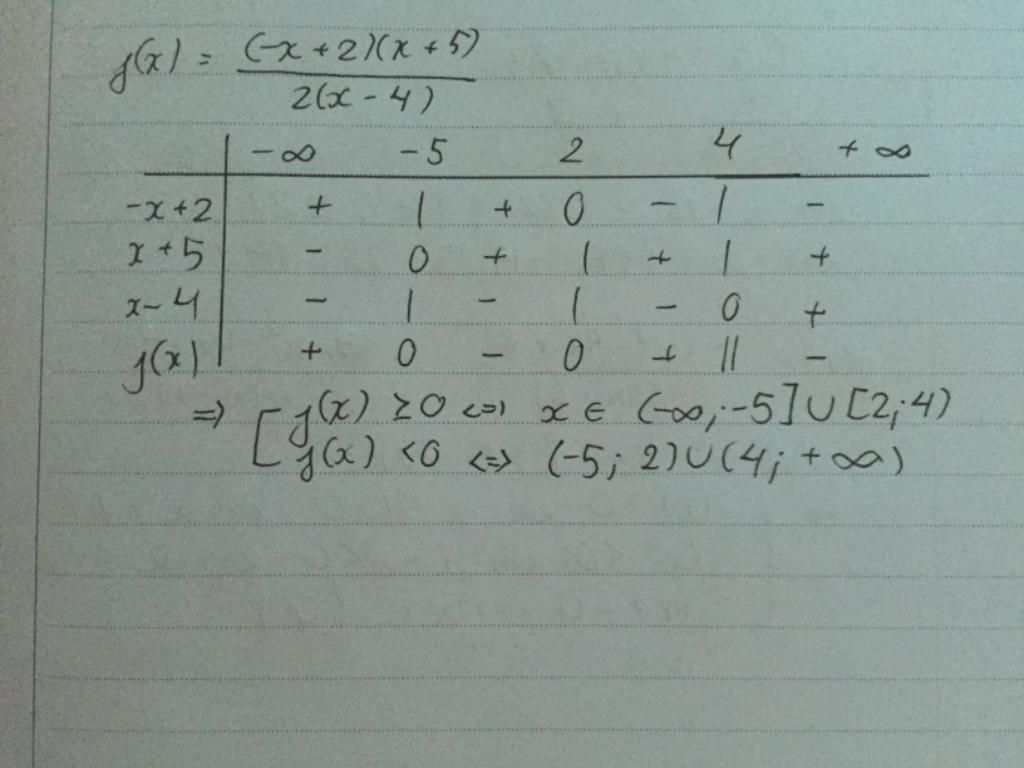 f(x) = (-x + 2)(x + 5) / 2(x - 4)
-∞ -5 2 4 +∞
-x+2 + | + 0 - | -
x+5 - 0 + | + | +
x-4 - | - | - 0 +
f(x) + 0 - 0 + || -
=> [ f(x) ≥0 <=> x ∈ (-∞;-5]∪[2;4)
f(x) <0 <=> (-5; 2)∪(4; +∞)